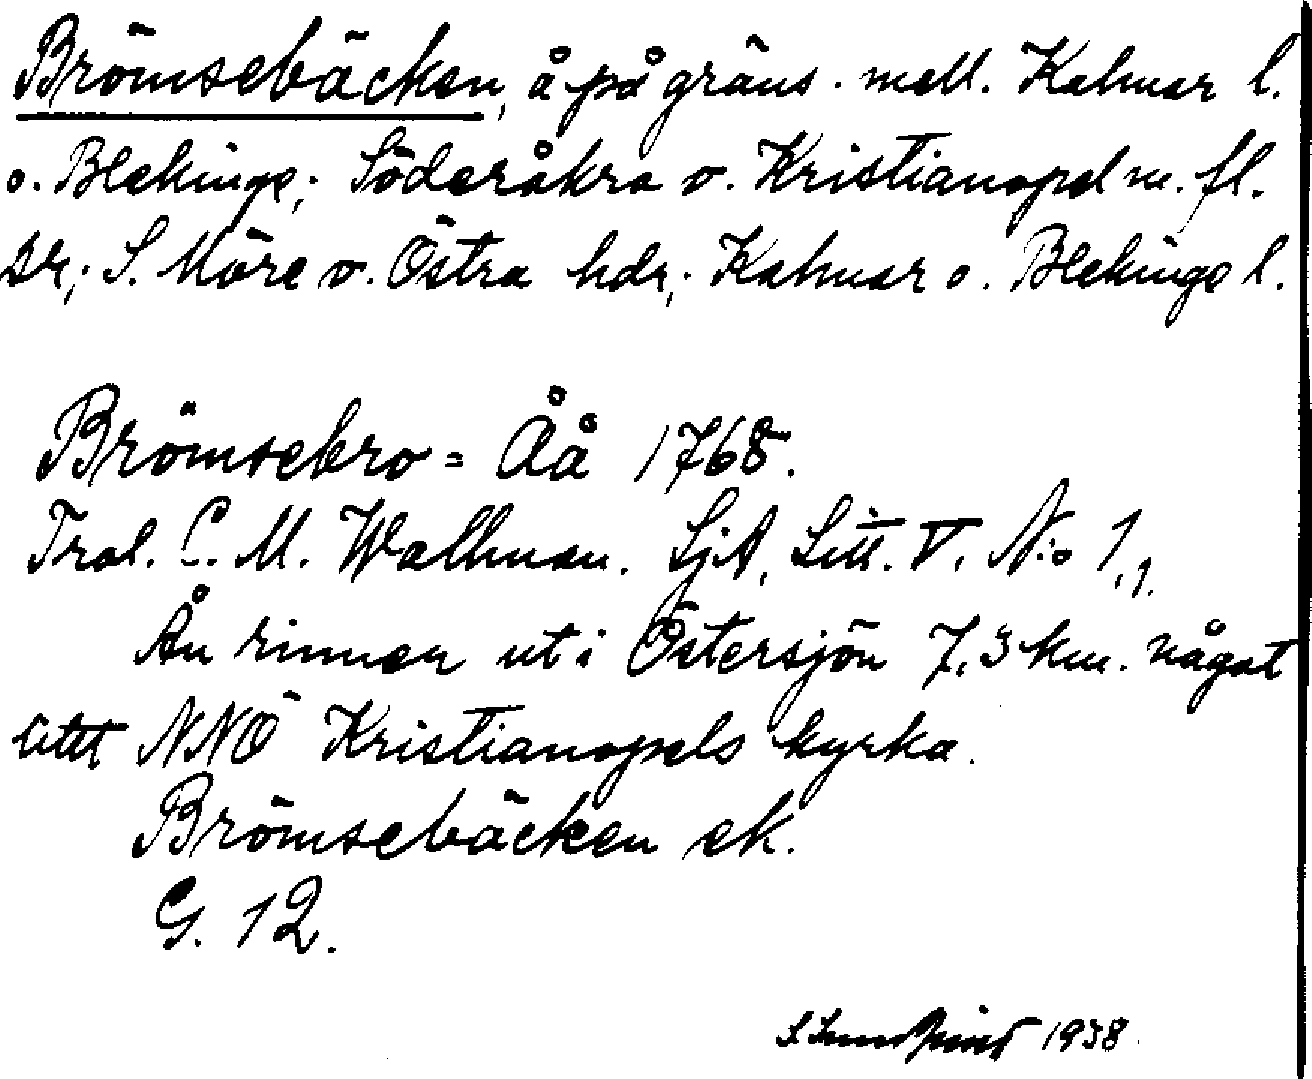 Brömsebäcken, å på gräns. mell. Kalmar l.
o. Blekinge; Söderåkra o. Kristianopel m. fl.
sr; S. Möre o. Östra hdr; Kalmar o. Blekinge l.
Brömsebro = Åå 1768.
Trol. C. M. Wallman. SjA, Litt. V. N:o 1,1.
Ån rinner ut i Östersjön 7,3 km. något
litet NNÖ Kristianopels kyrka.
Brömsebäcken ek.
G. 12.
1938